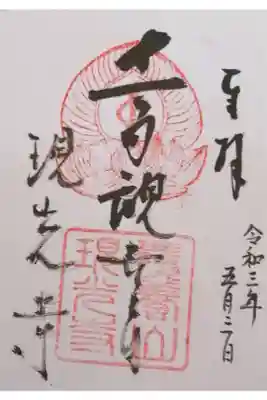 奉拝
令和三年
五月二日
十一面観音
現光寺
現光寺